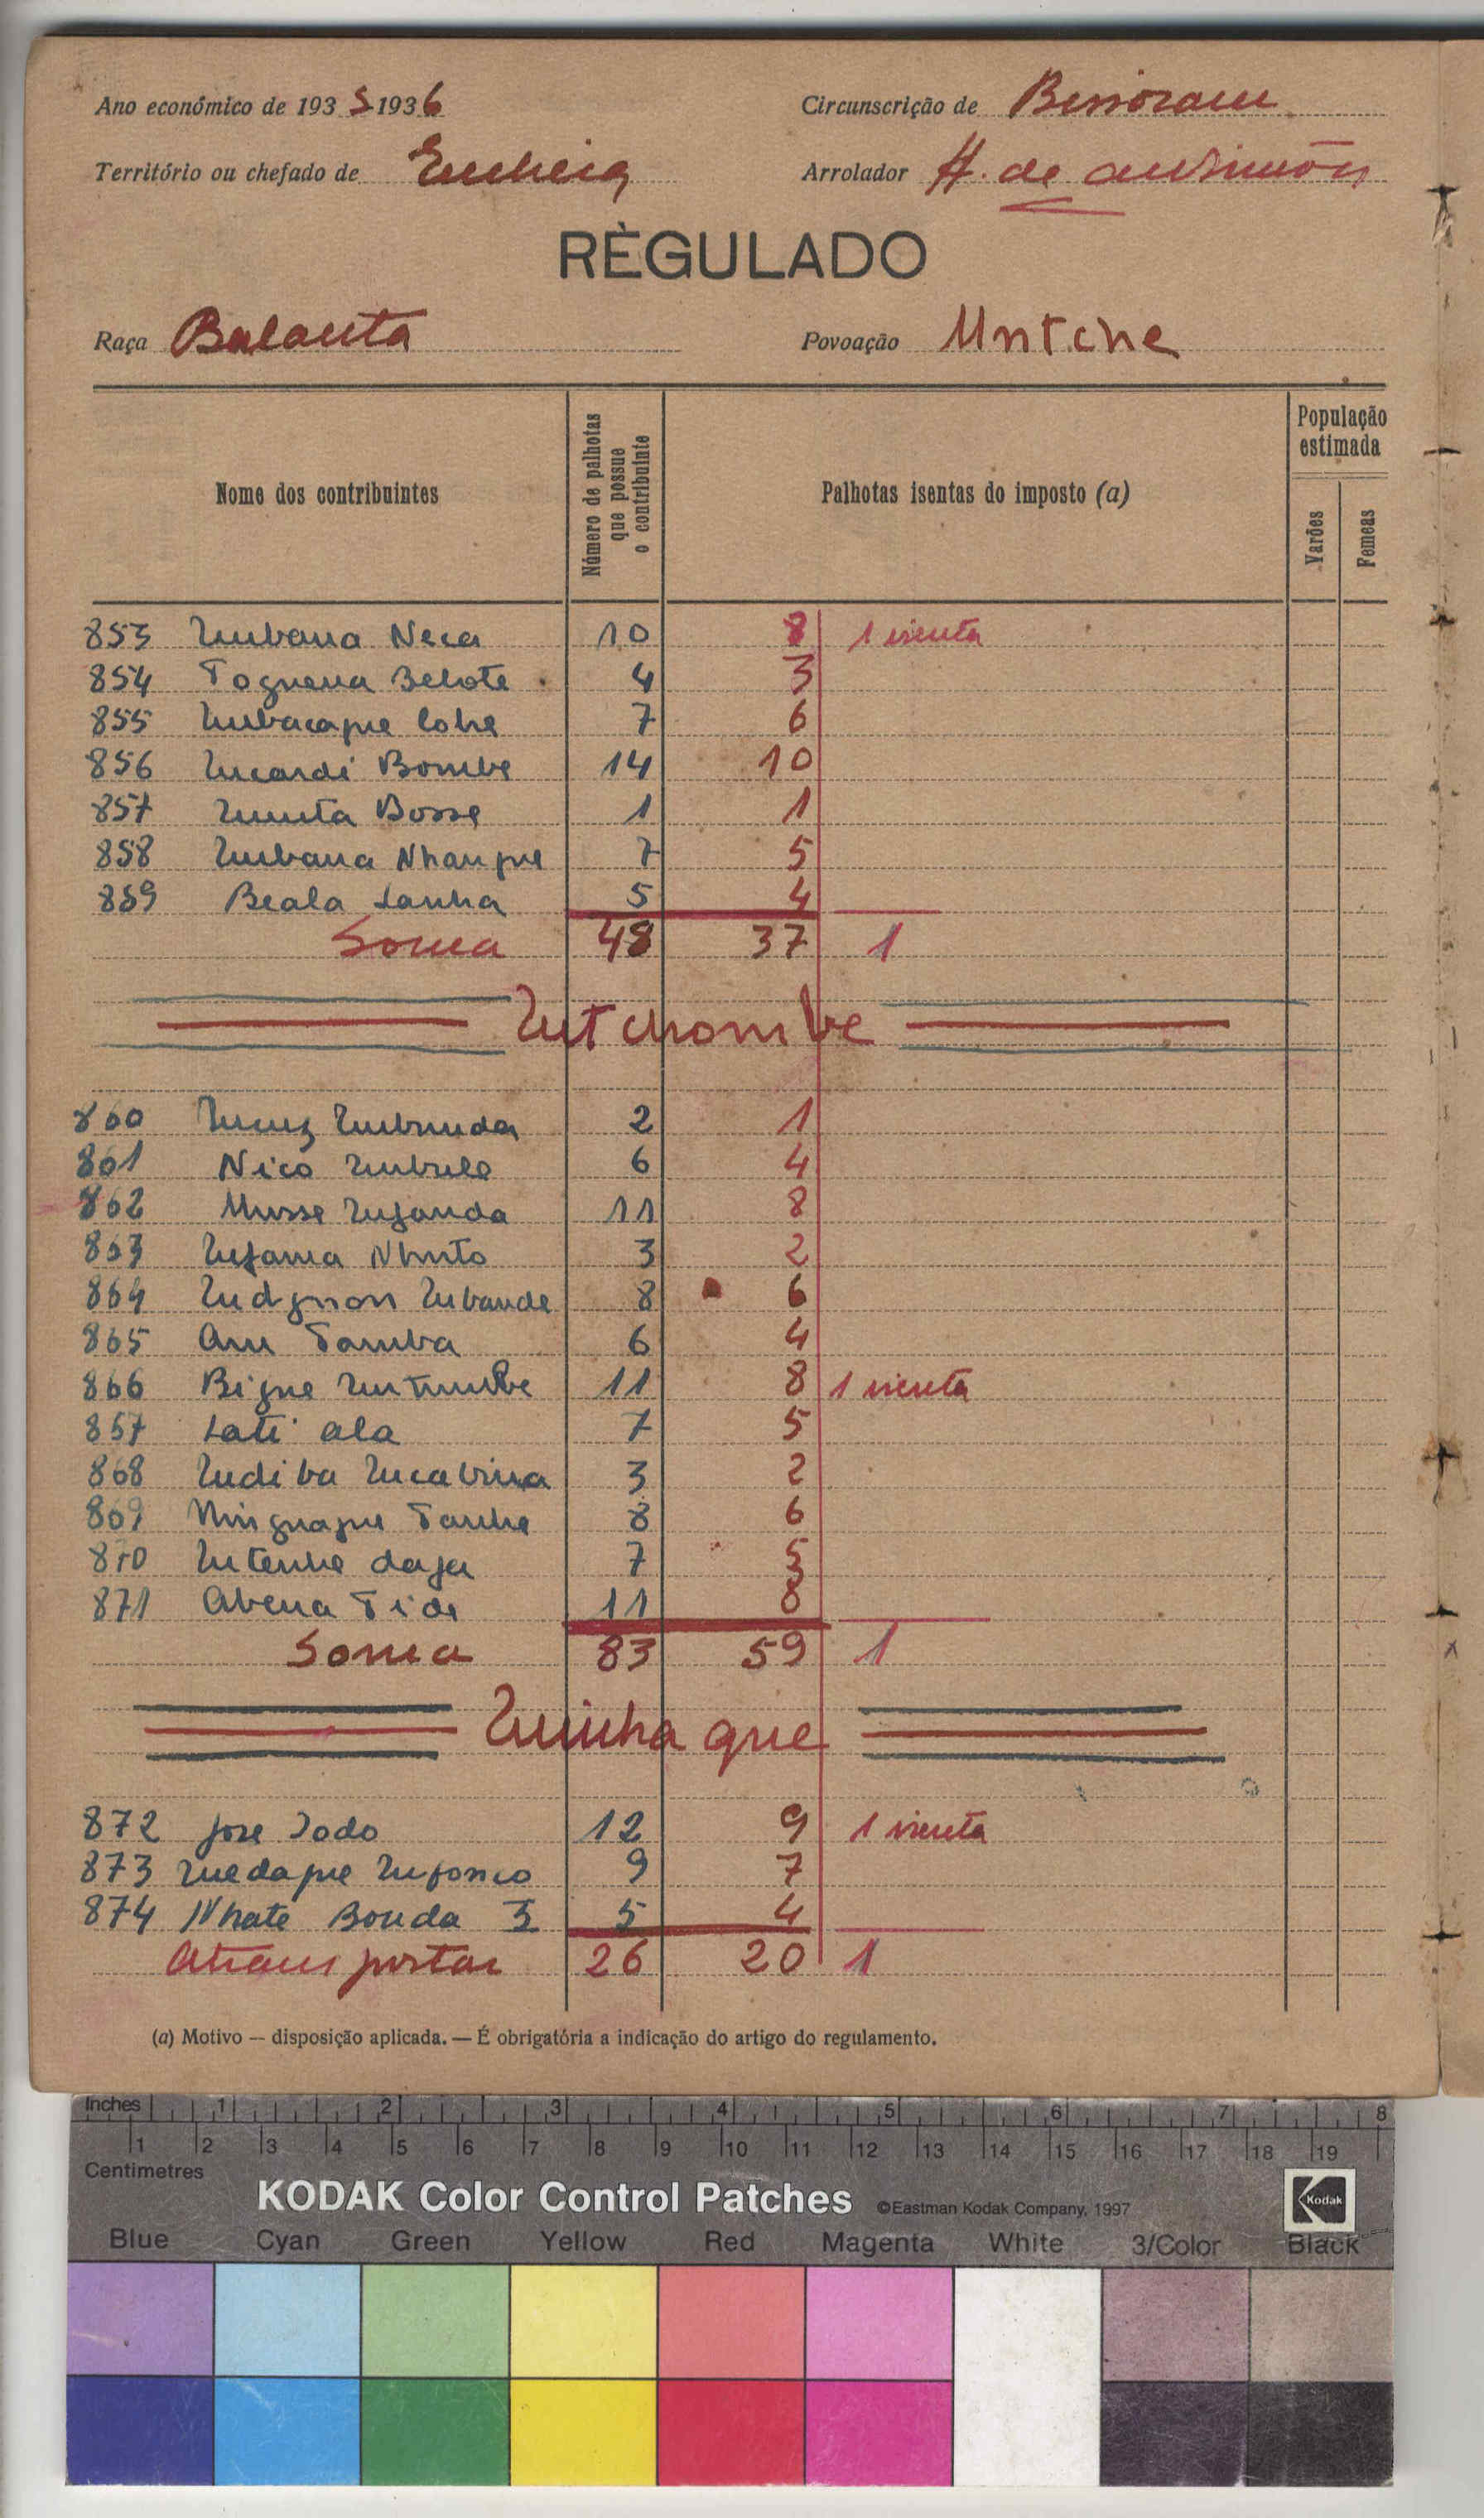 Ano económico de 1935-1936 Circunscrição de Bissoram
Território ou chefado de Encheia Arrolador H. de
RÈGULADO
Raça Balanta Povoação Untche
Nome dos contribuintes
Número de palhotas que possue o contribuinte
Palhotas isentas do imposto (a)
População estimada
Varões
Femeas
853 Imbana Neca 10 8 1 isenta
854 Toguena Belote 4 3
855 7 6
856 Incardi Bombe 14 10
857 Imuta Bosse 1 1
858 Imbana Nhanque 7 5
859 Beala Sanha 5 4
Soma 48 37 1
Intchombe
860 2 1
861 Nico 6 4
862 Musse Infanda 11 8
863 Infama 3 2
864 8 6
865 Tamba 6 4
866 Bigne 11 8 1 isenta
867 Lati ala 7 5
868 Indiba 3 2
869 8 6
870 7 5
871 Abena Tida 11 8
Soma 83 59 1
Ininhaque
872 José Dodo 12 9 1 isenta
873 9 7
874 Nhate Bonda 3 5 4
A transportar 26 20 1
(a) Motivo — disposição aplicada. — É obrigatória a indicação do artigo do regulamento.
Inches 1 2 3 4 5 6 7 8
1 2 3 4 5 6 7 8 9 10 11 12 13 14 15 16 17 18 19
Centimetres
KODAK Color Control Patches ©Eastman Kodak Company, 1997 Kodak
Blue Cyan Green Yellow Red Magenta White 3/Color Black